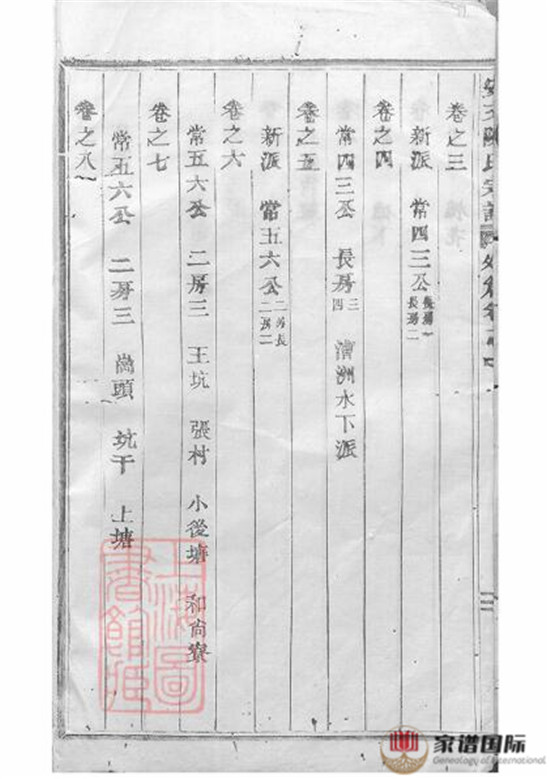 卷之三
新派 常四三公 長房一 長房二
卷之四
常四三公 長房三四 漕洲水下派
卷之五
新派 常五六公 二房長 二房二
卷之六
常五六公 二房三 王坑 張村 小後塘 和尙寮
卷之七
常五六公 二房三 崗頭 坑干 上塘
卷之八
上海圖書館藏
家谱国际
Genealogy of International